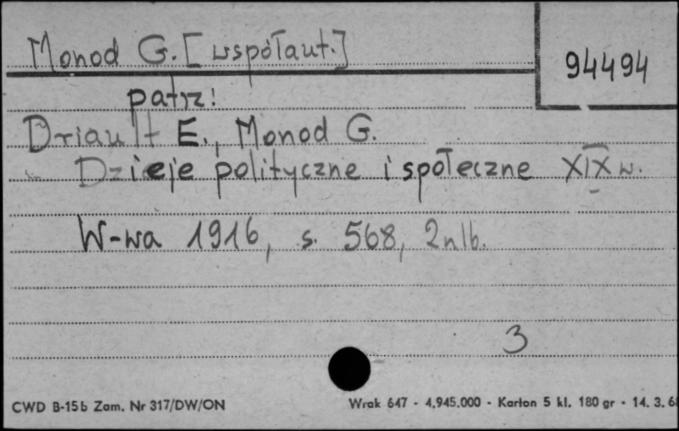 Monod G. [współaut.]
94494
patrz!
Driault E., Monod G.
Dzieje polityczne i społeczne XIX w.
W-wa 1916, s. 568, 2nlb.
3
CWD B-15b Zam. Nr 317/DW/ON
Wrak 647 - 4.945.000 - Karton 5 kl. 180 gr - 14. 3. 6